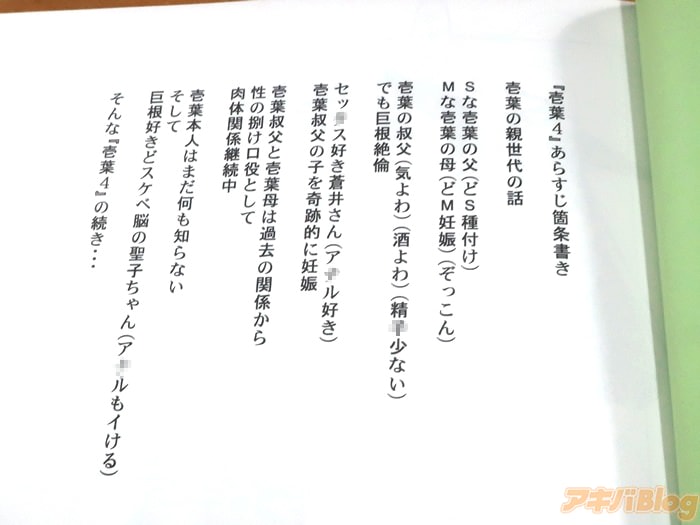 『壱葉４』あらすじ箇条書き
壱葉の親世代の話
Ｓな壱葉の父（どＳ種付け）
Ｍな壱葉の母（どＭ妊娠）（ぞっこん）
壱葉の叔父（気よわ）（酒よわ）（精 少ない）
でも巨根絶倫
セッ ス好き蒼井さん（ア ル好き）
壱葉叔父の子を奇跡的に妊娠
壱葉叔父と壱葉母は過去の関係から
性の捌け口役として
肉体関係継続中
壱葉本人はまだ何も知らない
そして
巨根好きどスケベ脳の聖子ちゃん（ア ルもイける）
そんな『壱葉４』の続き･･･
アキバBlog